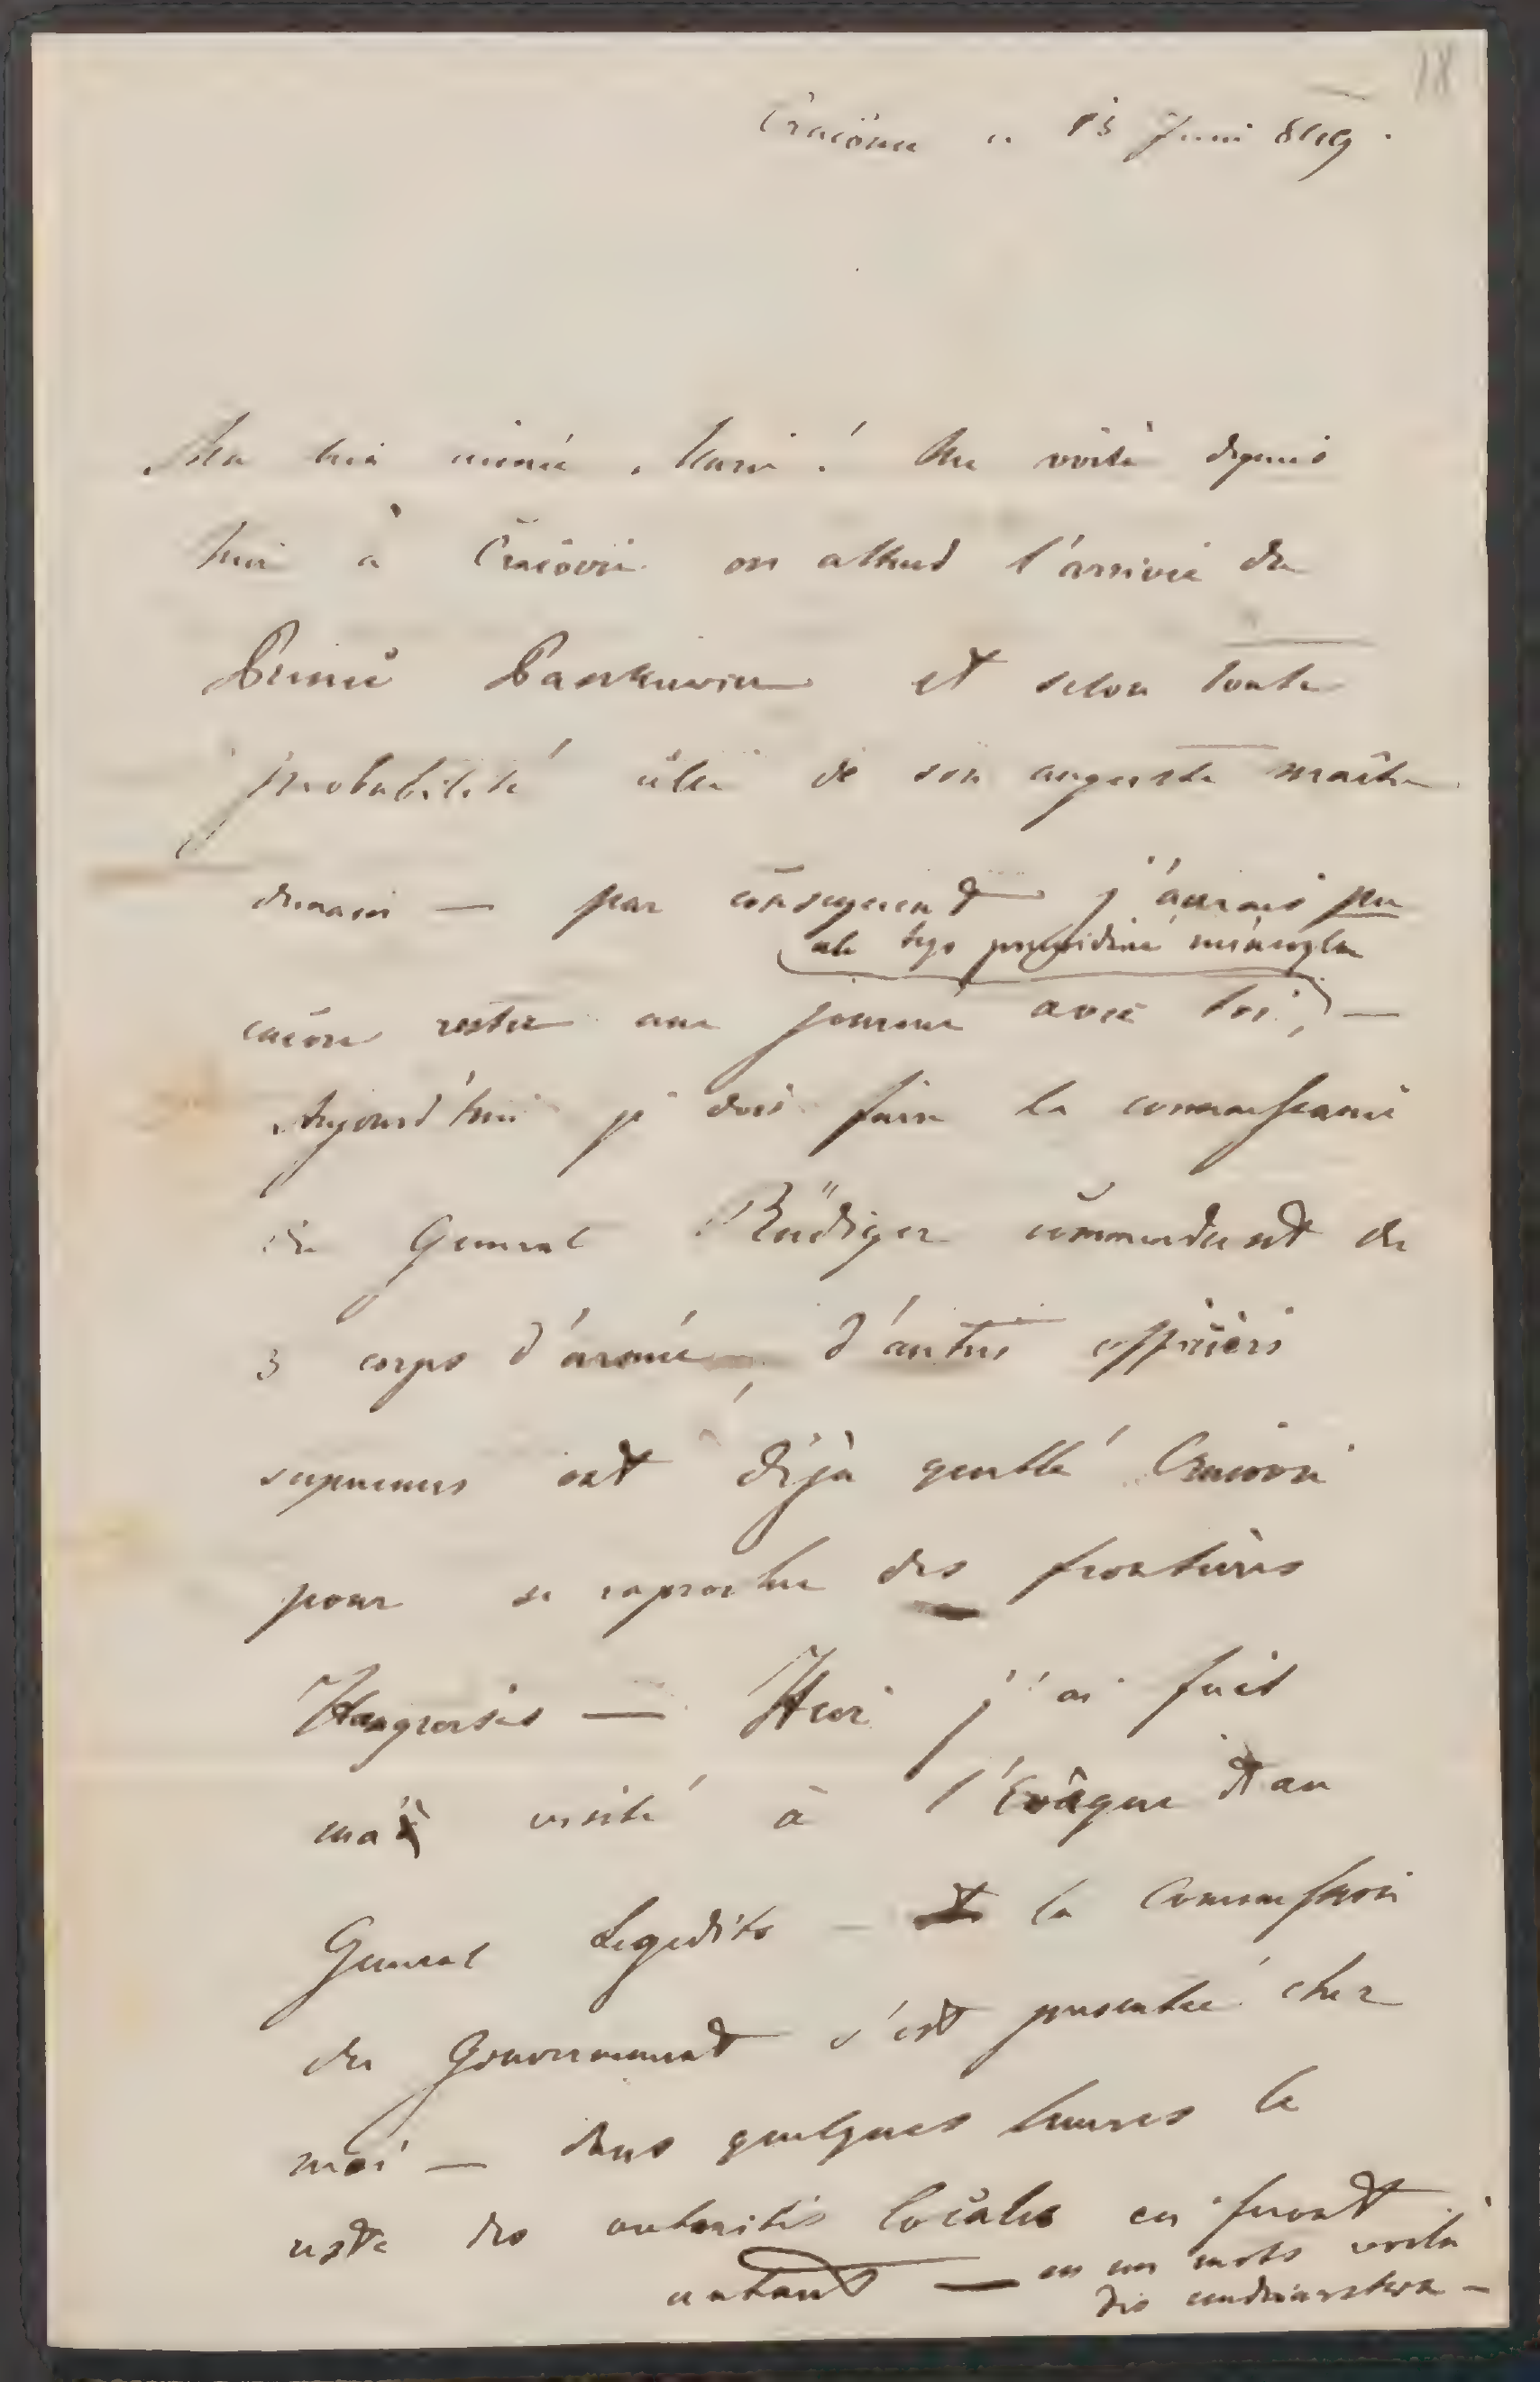 18
Cracovie 13 Juin 849.
Ma bien aimée Marie! Me voilà depuis
hier à Cracovie on attend l'arrivée du
Prince Paskiewicz et selon toute
probabilité celle de son auguste maître
demain — par conséquent j'aurais pu
ale tego przewidzieć niemogłem
encore rester une journée avec toi, —
Aujourd'hui je dois faire la connaissance
du General Rüdiger commandant du
3 corps d'armée, d'autres officiers
superieurs ont déjà quitté Cracovie
pour se raprocher des frontières
Hongroises — Hier j'ai fait
ma visite à l'Evêque et au
General Legeditz — la Commission
du Gouvernement s'est presentée chez
moi — dans quelques heures le
reste des autorités locales en feront
autant — en un mots voilà
des